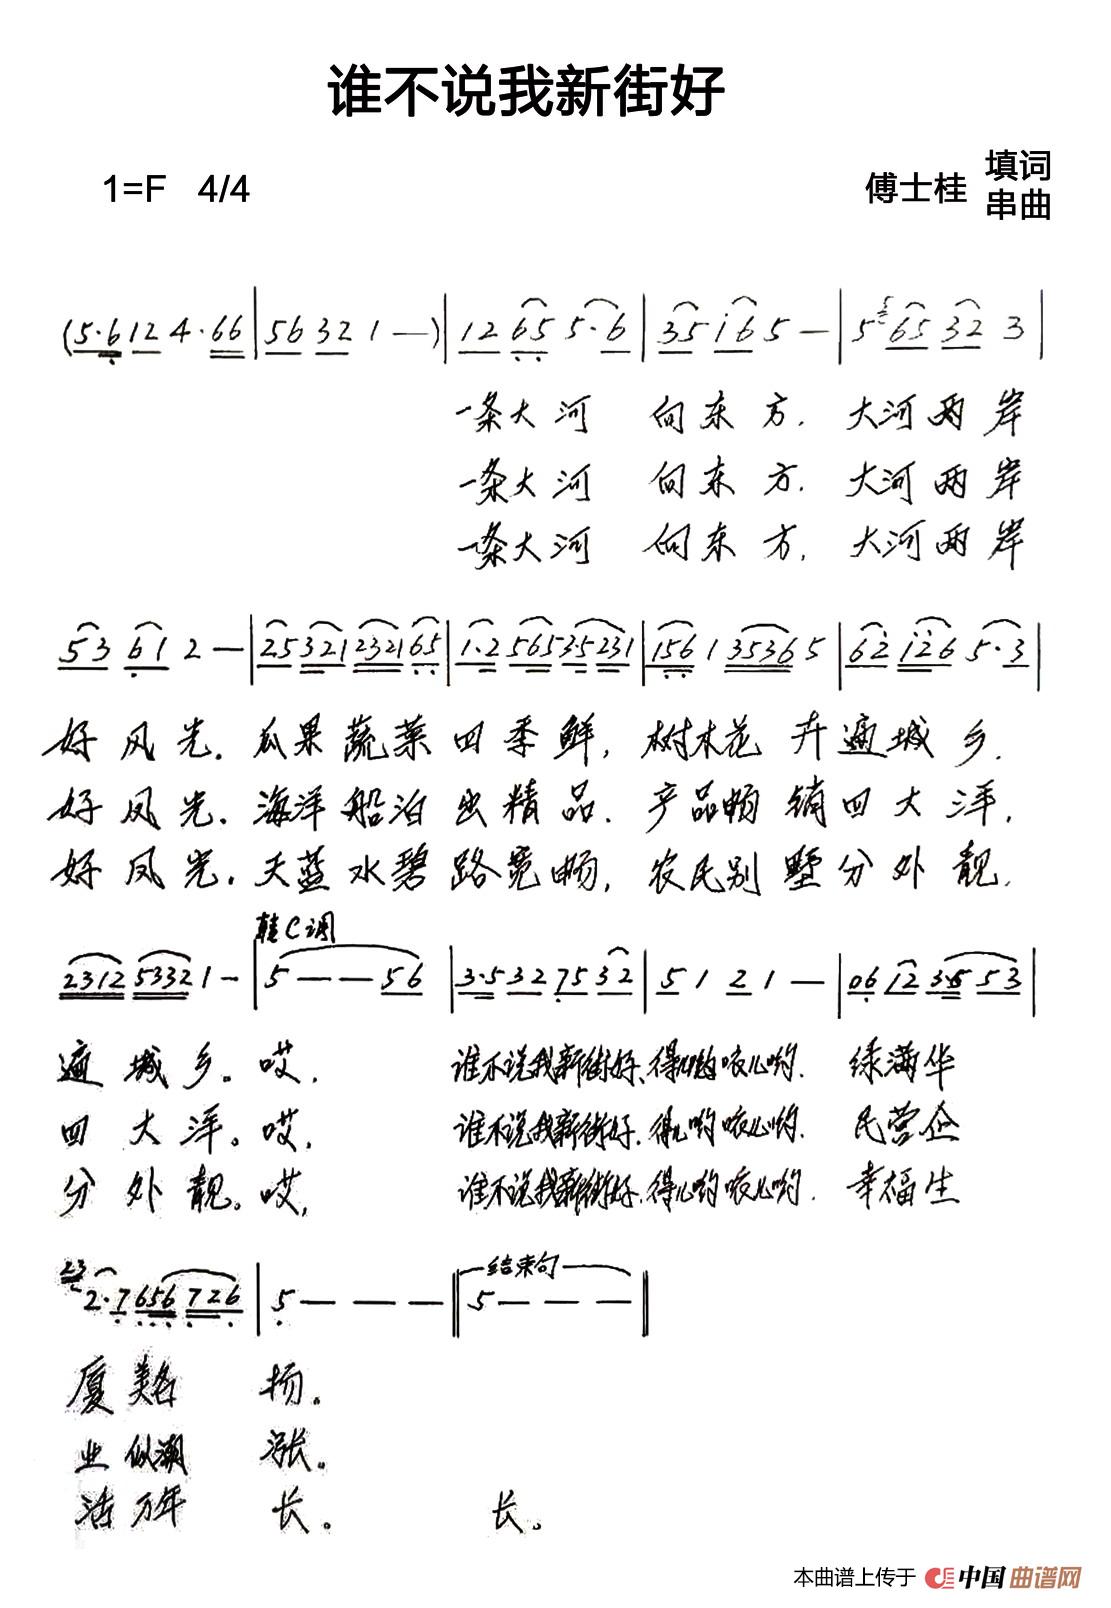 谁不说我新街好
1=F 4/4
傅士桂 填词
串曲
(5·6 12 4·66 | 56 32 1 — ) | 12 65 5·6 | 35 i6 5 — | 5 65 32 3 |
一条大河 向东方. 大河两岸
一条大河 向东方. 大河两岸
一条大河 向东方. 大河两岸
53 61 2 — | 25 321 2321 65 | 1·2 565 35 231 | 156 1 3536 5 | 62 i26 5·3 |
好风光. 瓜果蔬菜四季鲜, 树木花卉遍城乡.
好风光. 海洋船泊出精品. 产品畅销四大洋,
好风光. 天蓝水碧路宽畅, 农民别墅分外靓.
转C调
2312 5332 1 - | 5 — — 56 | 3·5 32 75 32 | 51 21 — | 06 12 3·5 53 |
遍城乡。哎, 谁不说我新街好, 得儿哟哝儿哟. 绿满华
四大洋。哎, 谁不说我新街好, 得儿哟哝儿哟. 民营企
分外靓。哎, 谁不说我新街好, 得儿哟哝儿哟. 幸福生
结束句
23 2·7 656 726 | 5 — — — || 5 — — — ||
厦美名 扬。
业似潮 涨。
活万年 长。 长。
本曲谱上传于 中国曲谱网